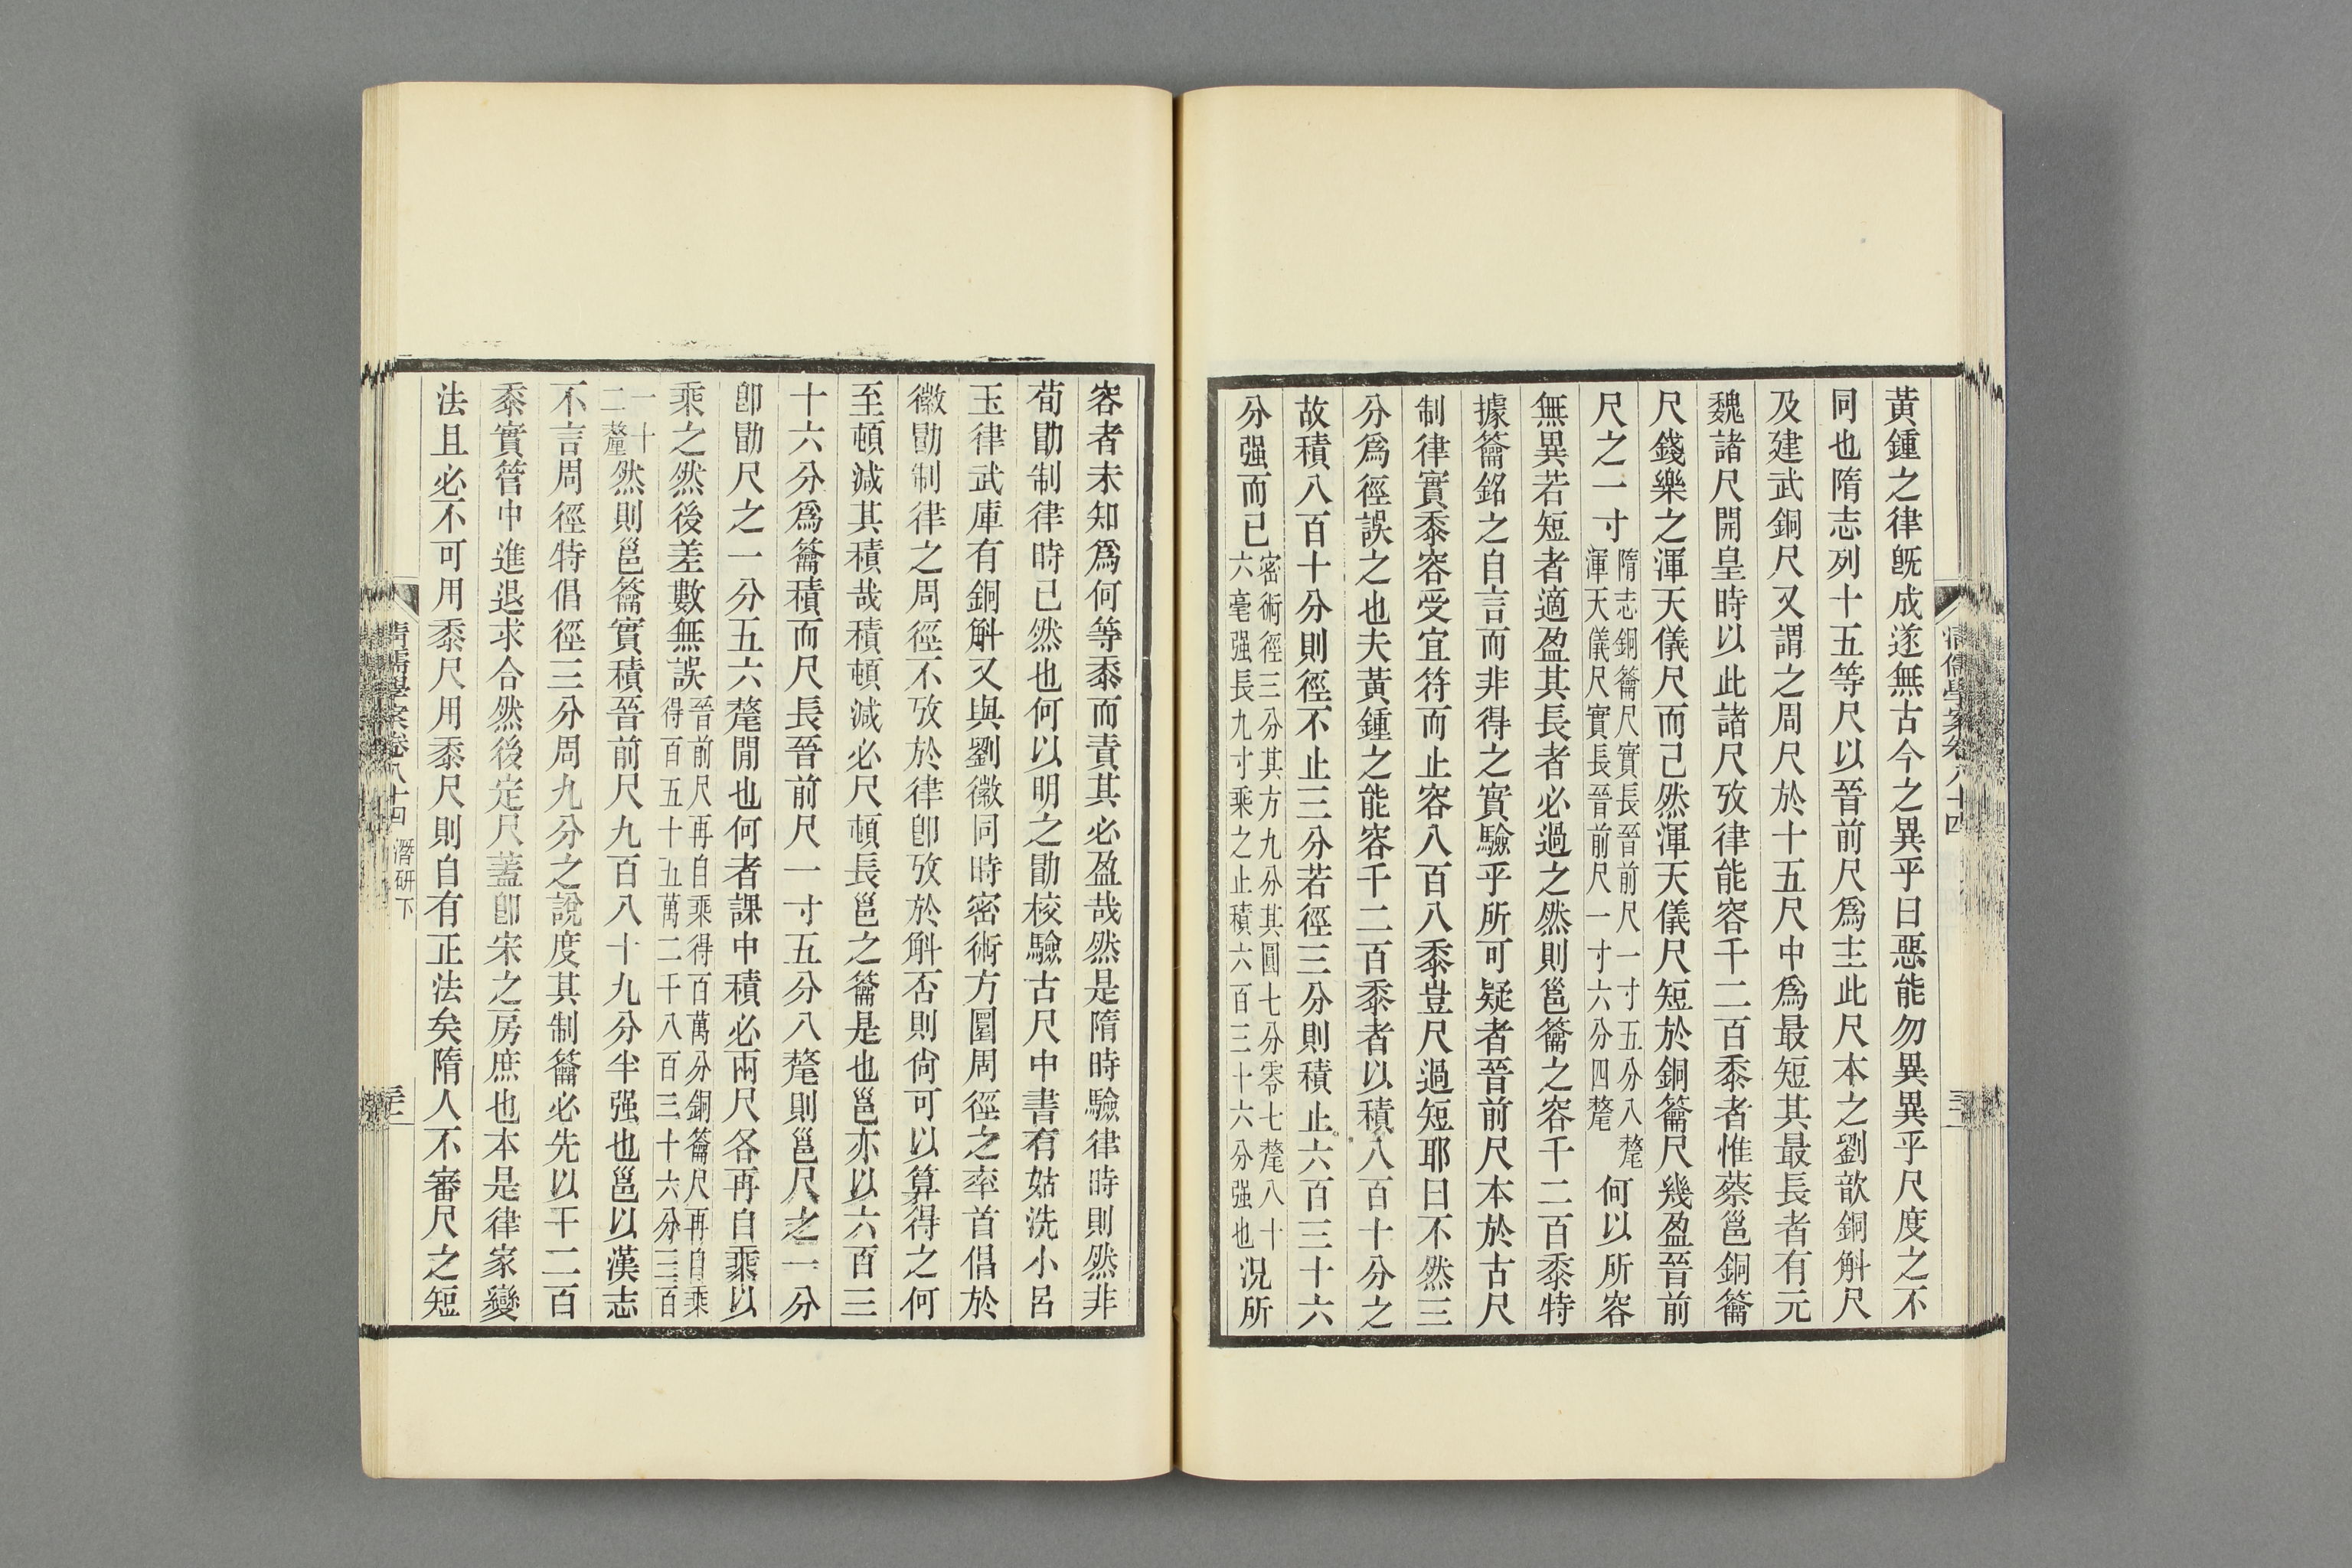 黃鍾之律旣成遂無古今之異乎曰惡能勿異異乎尺度之不
同也隋志列十五等尺以晉前尺爲主此尺本之劉歆銅斛尺
及建武銅尺又謂之周尺於十五尺中爲最短其最長者有元
魏諸尺開皇時以此諸尺攷律能容千二百黍者惟蔡邕銅籥
尺錢樂之渾天儀尺而已然渾天儀尺短於銅籥尺幾盈晉前
尺之一寸隋志銅籥尺實長晉前尺一寸五分八氂渾天儀尺實長晉前尺一寸六分四氂何以所容
無異若短者適盈其長者必過之然則邕籥之容千二百黍特
據籥銘之自言而非得之實驗乎所可疑者晉前尺本於古尺
制律實黍容受宜符而止容八百八黍豈尺過短耶曰不然三
分爲徑誤之也夫黃鍾之能容千二百黍者以積八百十分之
故積八百十分則徑不止三分若徑三分則積止六百三十六
分强而已密術徑三分其方九分其圓七分零七氂八十六毫强長九寸乘之止積六百三十六分强也況所
容者未知爲何等黍而責其必盈哉然是隋時驗律時則然非
荀勖制律時已然也何以明之勖校驗古尺中書有姑洗小呂
玉律武庫有銅斛又與劉徽同時密術方圓周徑之率首倡於
徽勖制律之周徑不攷於律卽攷於斛否則尙可以算得之何
至頓減其積哉積頓減必尺頓長邕之籥是也邕亦以六百三
十六分爲籥積而尺長晉前尺一寸五分八氂則邕尺之一分
卽勖尺之一分五六氂閒也何者課中積必兩尺各再自乘以
乘之然後差數無誤晉前尺再自乘得百萬分銅籥尺再自乘得百五十五萬二千八百三十六分三百
一十二釐然則邕籥實積晉前尺九百八十九分半强也邕以漢志
不言周徑特倡徑三分周九分之說度其制籥必先以千二百
黍實管中進退求合然後定尺蓋卽宋之房庶也本是律家變
法且必不可用黍尺用黍尺則自有正法矣隋人不審尺之短
清儒學案卷八十四 潛研下